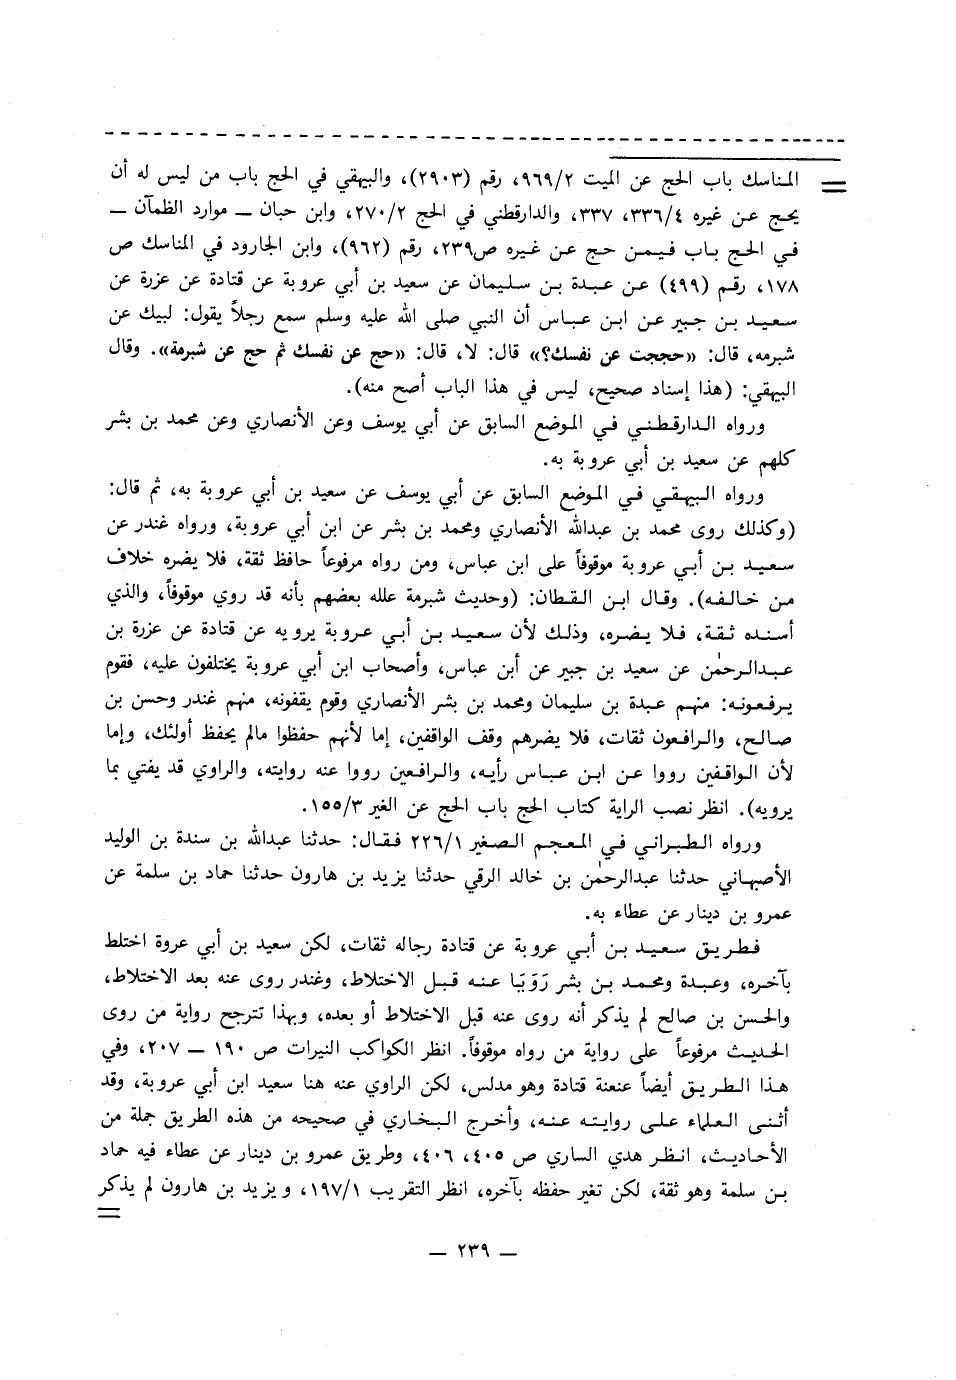 = المناسك باب الحج عن الميت ٩٦٩/٢، رقم (٢٩٠٣)، والبيهقي في الحج باب من ليس له أن
يحج عن غيره ٣٣٦/٤، ٣٣٧، والدارقطني في الحج ٢٧٠/٢، وابن حبان — موارد الظمآن —
في الحج باب فيمن حج عن غيره ص٢٣٩، رقم (٩٦٢)، وابن الجارود في المناسك ص
١٧٨، رقم (٤٩٩) عن عبدة بن سليمان عن سعيد بن أبي عروبة عن قتادة عن عزرة عن
سعيد بن جبير عن ابن عباس أن النبي صلى الله عليه وسلم سمع رجلاً يقول: لبيك عن
شبرمه، قال: «حججت عن نفسك؟» قال: لا، قال: «حج عن نفسك ثم حج عن شبرمة». وقال
البيهقي: (هذا إسناد صحيح، ليس في هذا الباب أصح منه).
ورواه الدارقطني في الموضع السابق عن أبي يوسف وعن الأنصاري وعن محمد بن بشر
كلهم عن سعيد بن أبي عروبة به.
ورواه البيهقي في الموضع السابق عن أبي يوسف عن سعيد بن أبي عروبة به، ثم قال:
(وكذلك روى محمد بن عبدالله الأنصاري ومحمد بن بشر عن ابن أبي عروبة، ورواه غندر عن
سعيد بن أبي عروبة موقوفاً على ابن عباس، ومن رواه مرفوعاً حافظ ثقة، فلا يضره خلاف
من خالفه). وقال ابن القطان: (وحديث شبرمة علله بعضهم بأنه قد روي موقوفاً، والذي
أسنده ثقة، فلا يضره، وذلك لأن سعيد بن أبي عروبة يرويه عن قتادة عن عزرة بن
عبدالرحمٰن عن سعيد بن جبير عن أبن عباس، وأصحاب ابن أبي عروبة يختلفون عليه، فقوم
يرفعونه: منهم عبدة بن سليمان ومحمد بن بشر الأنصاري وقوم يقفونه، منهم غندر وحسن بن
صالح، والرافعون ثقات، فلا يضرهم وقف الواقفين، إما لأنهم حفظوا مالم يحفظ أولئك، وإما
لأن الواقفين رووا عن ابن عباس رأيه، والرافعين رووا عنه روايته، والراوي قد يفتي بما
يرويه). انظر نصب الراية كتاب الحج باب الحج عن الغير ١٥٥/٣.
ورواه الطبراني في المعجم الصغير ٢٢٦/١ فقال: حدثنا عبدالله بن سندة بن الوليد
الأصبهاني حدثنا عبدالرحمٰن بن خالد الرقي حدثنا يزيد بن هارون حدثنا حماد بن سلمة عن
عمرو بن دينار عن عطاء به.
فطريق سعيد بن أبي عروبة عن قتادة رجاله ثقات، لكن سعيد بن أبي عروة اختلط
بآخره، وعبدة ومحمد بن بشر رَوَيَا عنه قبل الاختلاط، وغندر روى عنه بعد الاختلاط،
والحسن بن صالح لم يذكر أنه روى عنه قبل الاختلاط أو بعده، وبهذا تترجح رواية من روى
الحديث مرفوعاً على رواية من رواه موقوفاً. انظر الكواكب النيرات ص ١٩٠ — ٢٠٧، وفي
هذا الطريق أيضاً عنعنة قتادة وهو مدلس، لكن الراوي عنه هنا سعيد ابن أبي عروبة، وقد
أثنى العلماء على روايته عنه، وأخرج البخاري في صحيحه من هذه الطريق جملة من
الأحاديث، انظر هدي الساري ص ٤٠٥، ٤٠٦، وطريق عمرو بن دينار عن عطاء فيه حماد
بن سلمة وهو ثقة، لكن تغير حفظه بآخره، انظر التقريب ١٩٧/١، ويزيد بن هارون لم يذكر
=
— ٢٣٩ —